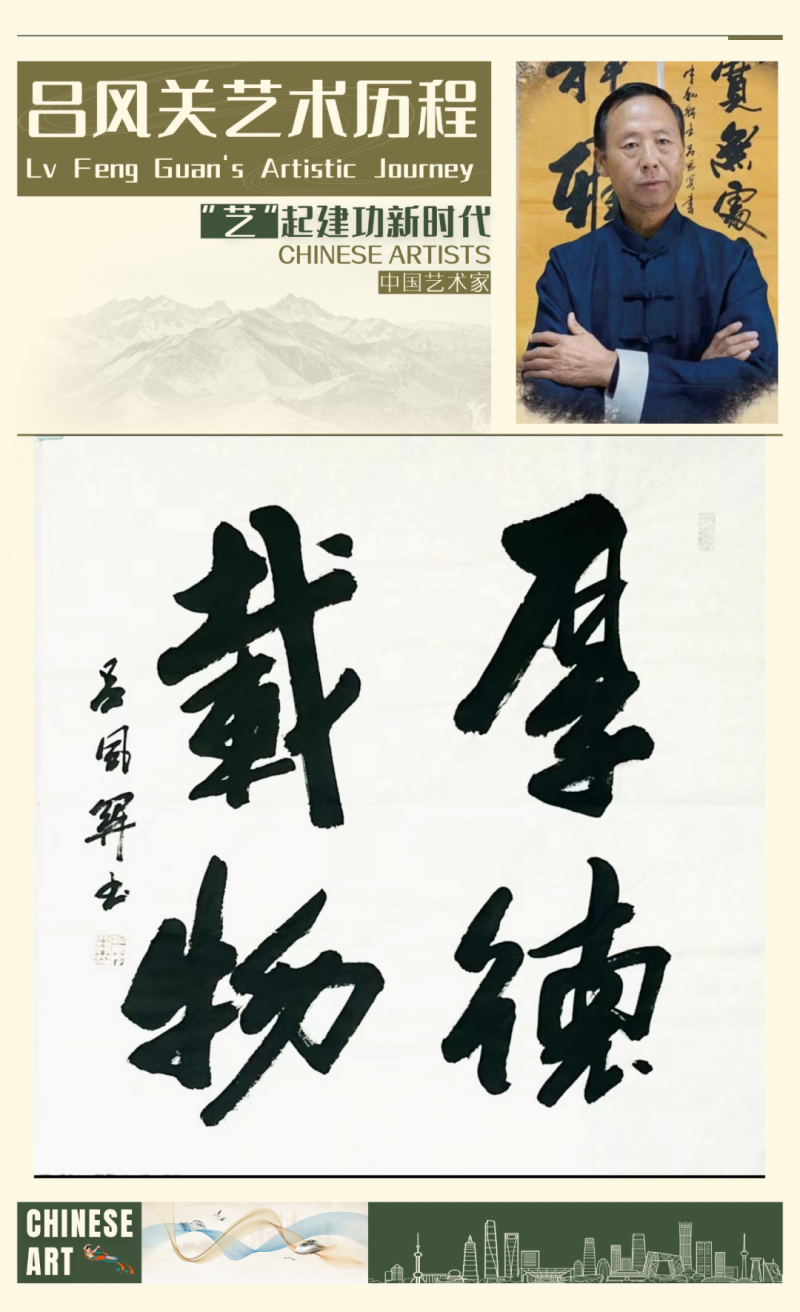 吕风关艺术历程
Lv Feng Guan's Artistic Journey
“艺”起建功新时代
CHINESE ARTISTS
中国艺术家
厚德
載物
吕风関书
CHINESE
ART